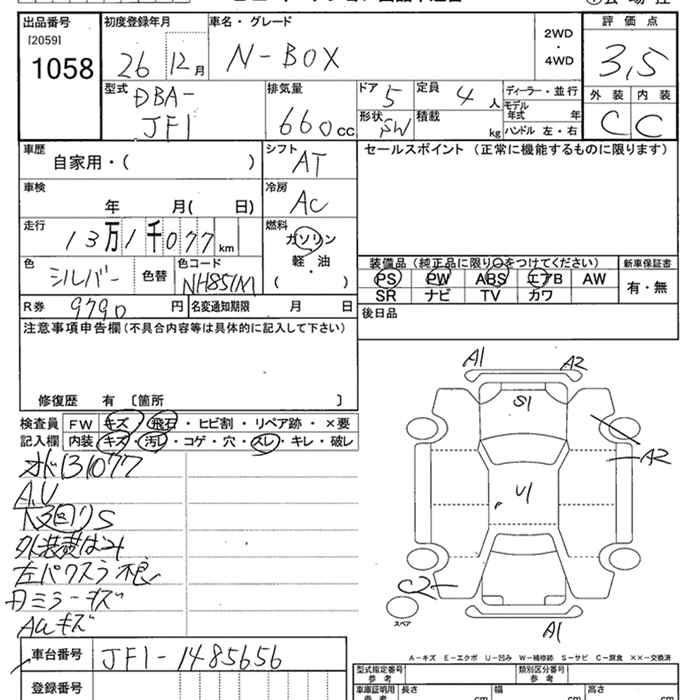 出品番号 初度登録年月 車名・グレード 2WD・4WD 評価点
[2059]
1058 26 12月 N-BOX 3,5
型式 排気量 ドア 定員 ディーラー・並行 外装 内装
DBA-JF1 660CC 5 4人 モデル年式 年 C C
形状 SW 積載 kg ハンドル 左・右
車歴 シフト セールスポイント (正常に機能するものに限ります)
自家用・( ) AT
車検 冷房
年 月( 日) AC
走行 燃料
13万1千077km ガソリン・軽・油
( )
色 色替 色コード 装備品(純正品に限り○をつけてください) 新車保証書
シルバー NH851M PS PW ABS エアB AW 有・無
SR ナビ TV カワ
R券 9790円 名変通知期限 月 日 後日品
注意事項申告欄(不具合内容等は具体的に記入して下さい)
修復歴 有 [箇所 ]
検査員 FW キズ・飛石・ヒビ割・リペア跡・×要
記入欄 内装 キズ・汚レ・コゲ・穴・スレ・キレ・破レ
メーター131077
A.U
下廻りS
外装費はみ
左バックスラ不良
内ミラーキズ
AWキズ
A1 A2
S1
A2
U1
C2
スペア
A1
A-キズ E-エクボ U-凹み W-補修跡 S-サビ C-腐食 ××-交換済
車台番号 JF1-1485656 型式指定番号 参考 類別区分番号 参考
登録番号 車庫証明用 参考 長さ cm 幅 cm 高さ cm